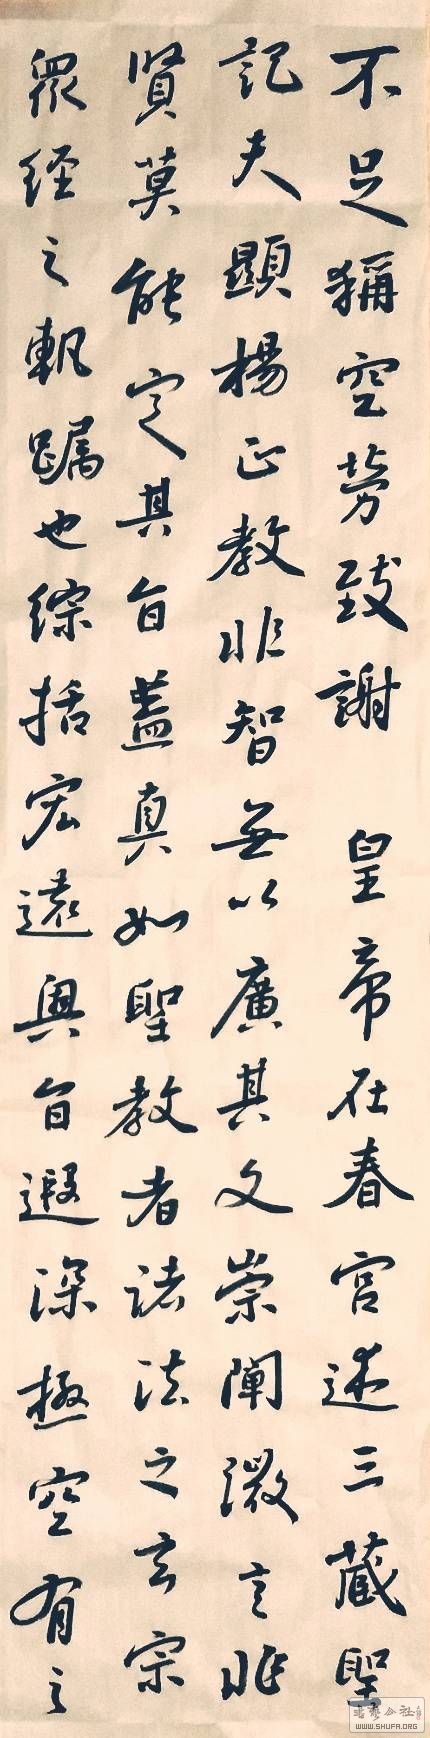 不足稱空勞致謝 皇帝在春宮述三藏聖
記夫顯揚正教非智無以廣其文崇闡微言非
賢莫能定其旨蓋真如聖教者諸法之玄宗
眾經之軌躅也綜括宏遠奧旨遐深極空有之
書法公社
WWW.SHUFA.ORG